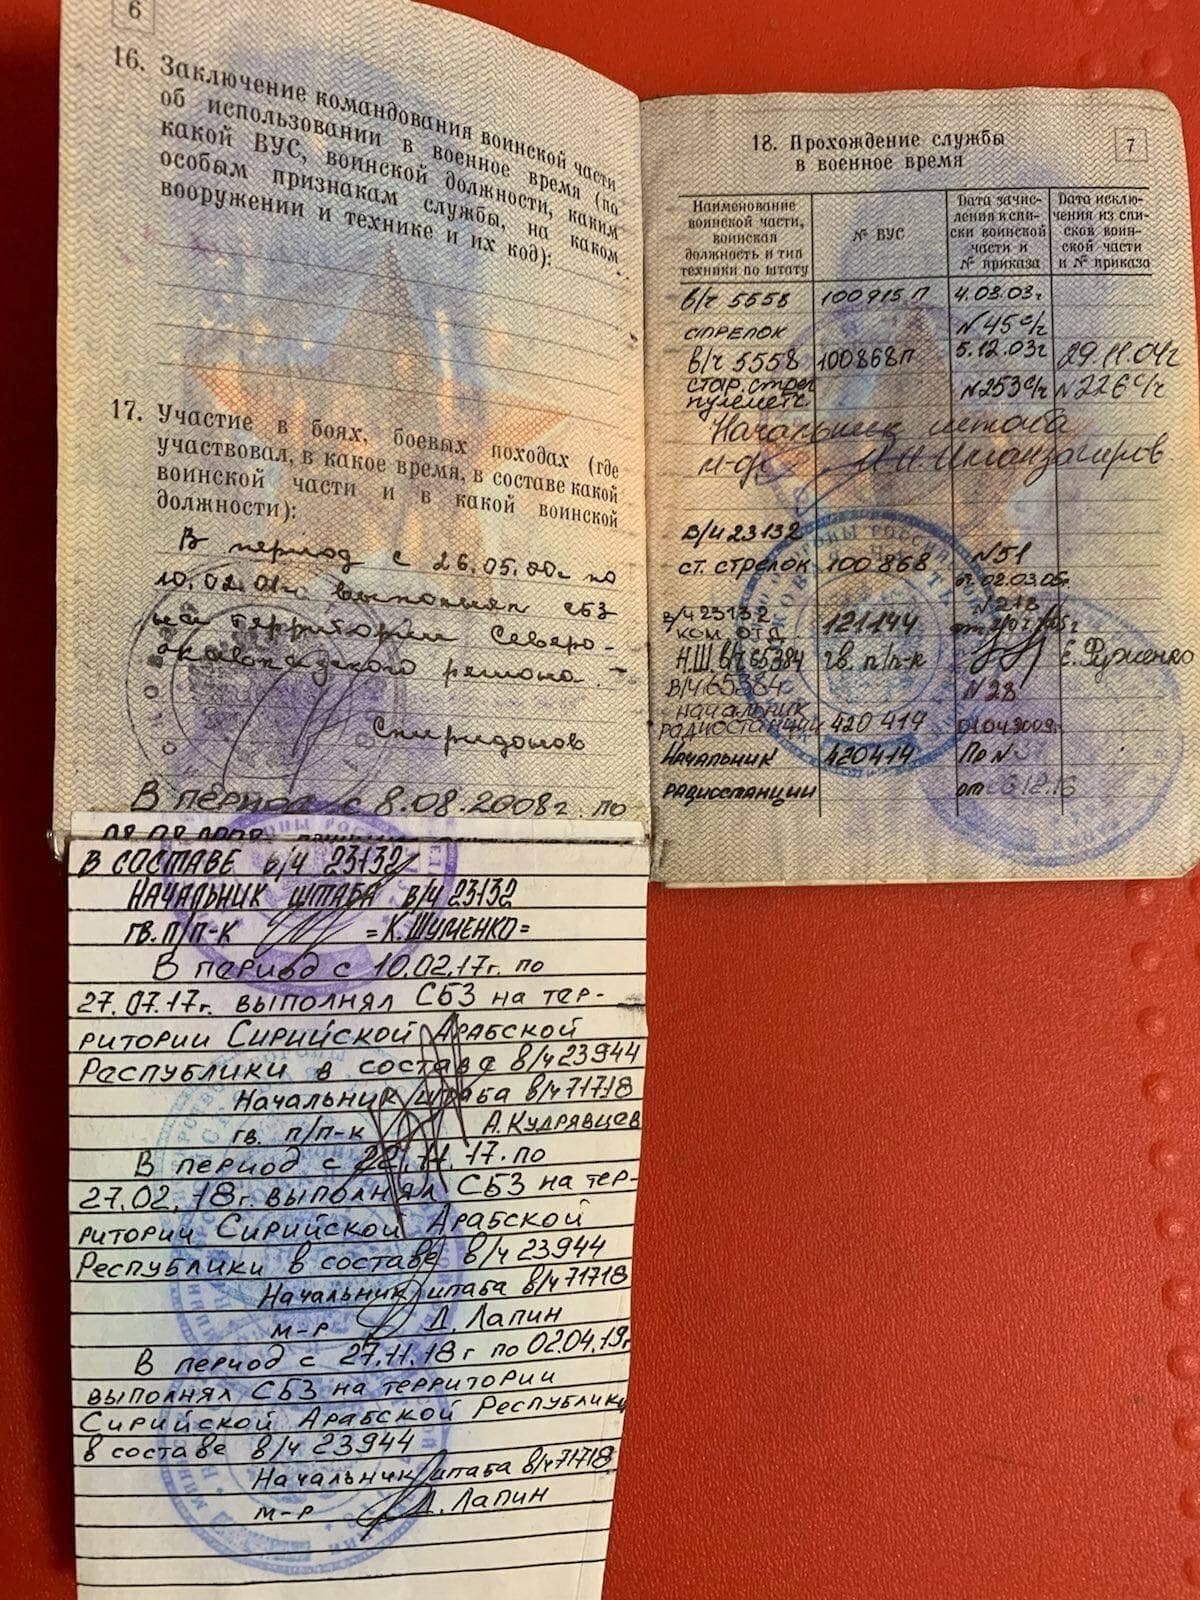 6
16. Заключение командования воинской части
об использовании в военное время (по
какой ВУС, воинской должности, каким
особым признакам службы, на каком
вооружении и технике и их код):
17. Участие в боях, боевых походах (где
участвовал, в какое время, в составе какой
воинской части и в какой воинской
должности):
В период с 26.05.00г по
10.02.01г выполнял СБЗ
территории Северо-
кавказского региона.
Спиридонов
В период с 8.08.2008г. по
В СОСТАВЕ в/ч 23132
НАЧАЛЬНИК ШТАБА в/ч 23132
гв. п/п-к =К.ШУМЕНКО=
В период с 10.02.17г. по
27.07.17г. выполнял СБЗ на тер-
ритории Сирийской Арабской
Республики в составе в/ч 23944
Начальник штаба в/ч 71718
гв. п/п-к А.Кудрявцев
В период с 22.11.17. по
27.02.18г. выполнял СБЗ на тер-
ритории Сирийской Арабской
Республики в составе в/ч 23944
Начальник штаба в/ч 71718
м-р Д. Лапин
В период с 27.11.18г по 02.04.19г
выполнял СБЗ на территории
Сирийской Арабской Республики
в составе в/ч 23944
Начальник штаба в/ч 71718
м-р Д. Лапин
7
18. Прохождение службы
в военное время
Наименование воинской части, воинская должность и тип техники по штату
№ ВУС
Дата зачисления в списки воинской части и № приказа
Дата исключения из списков воинской части и № приказа
в/ч 5558 100915 П 4.03.03г
стрелок №45 с/ч
в/ч 5558 100868П 5.12.03г 29.11.04г
стар. стрел №253 с/ч №226 с/ч
пулеметч.
Начальник штаба
м-р
в/ч 23132 №51
ст. стрелок 100868 от 02.03.05г.
в/ч 23132 №218
ком. отд. 121144
Н.Ш. в/ч 65384 гв. п/п-к С. Руженко
в/ч 65384 №28
начальник
радиостанции 420414 01.04.2009г.
Начальник 420414 Пр №
радиостанции от 6.12.16